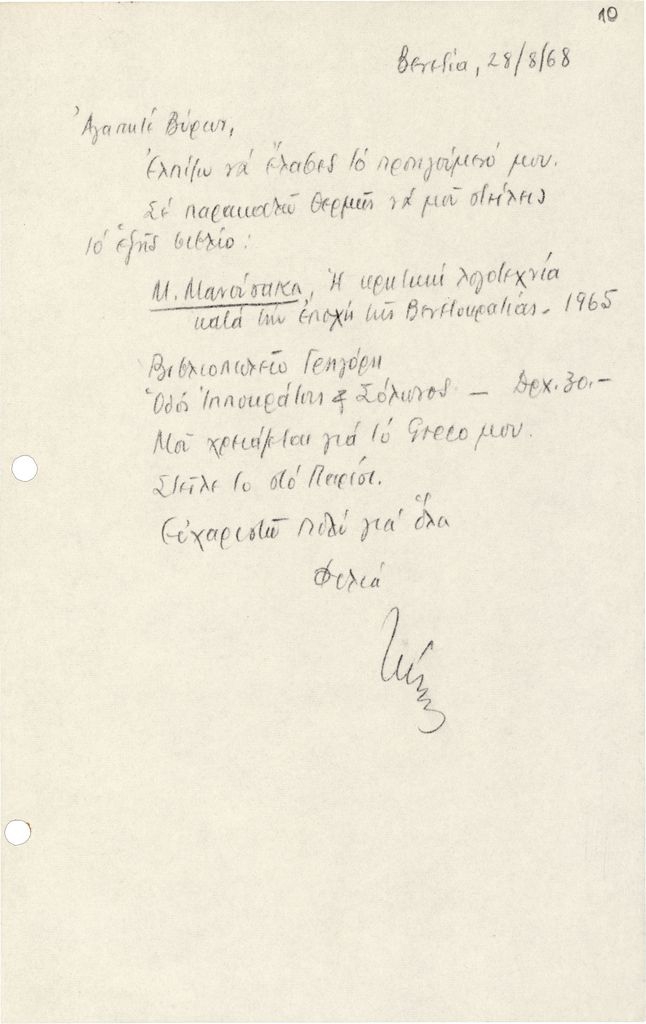 10
Βενετία, 28/8/68
Ἀγαπητέ Βύρων,
Ἐλπίζω νά ἔλαβες τό προηγούμενό μου.
Σέ παρακαλῶ θερμῶς νά μοῦ στείλεις
τό ἑξῆς βιβλίο:
Μ. Μανούσακα, Ἡ κρητική λογοτεχνία
κατά τήν ἐποχή τῆς Βενετοκρατίας. 1965
Βιβλιοπωλεῖο Γρηγόρη
Ὁδός Ἱπποκράτους & Σόλωνος — Δρχ. 30.-
Μοῦ χρειάζεται γιά τό Greco μου.
Στεῖλε το στό Παρίσι.
Εὐχαριστῶ πολύ γιά ὅλα
Φιλιά